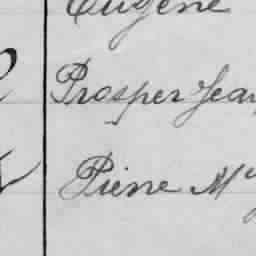 Eugène
Prosper Jean
Pierre M